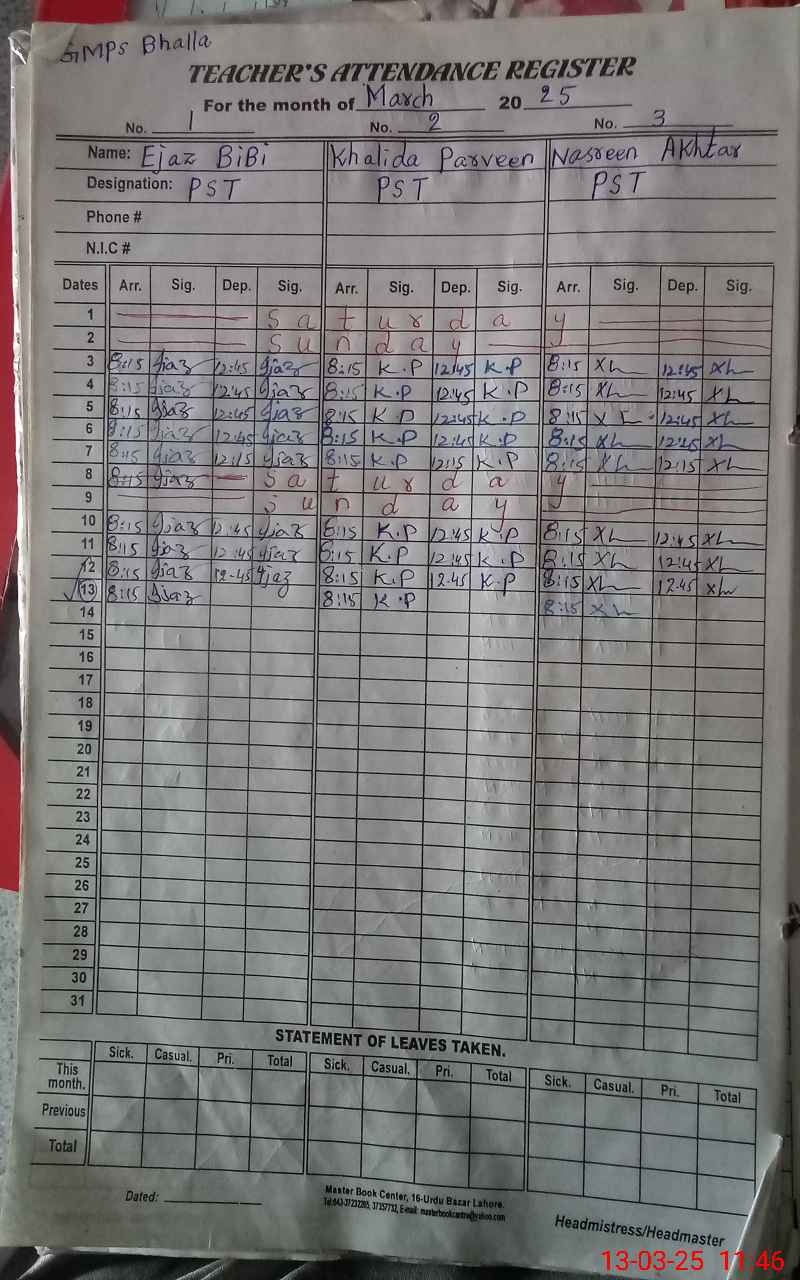 GMPS Bhalla
TEACHER'S ATTENDANCE REGISTER
For the month of March 20 25
No. 1 No. 2 No. 3
Name: Ejaz BiBi Khalida Parveen Nasreen Akhtar
Designation: PST PST PST
Phone #
N.I.C #
Dates Arr. Sig. Dep. Sig. Arr. Sig. Dep. Sig. Arr. Sig. Dep. Sig.
1 Saturday
2 Sunday
3 8:15 Ijaz 12:45 Ijaz 8:15 K.P 12:45 K.P 8:15 12:45
4 8:15 Ijaz 12:45 Ijaz 8:15 K.P 12:45 K.P 8:15 12:45
5 8:15 Ijaz 12:45 Ijaz 8:15 K.P 12:45 K.P 8:15 12:45
6 8:15 Ijaz 12:45 Ijaz 8:15 K.P 12:45 K.P 8:15 12:45
7 8:15 Ijaz 12:15 Ijaz 8:15 K.P 12:15 K.P 8:15 12:15
8 8:15 Ijaz Saturday
9 Sunday
10 8:15 Ijaz 12:45 Ijaz 8:15 K.P 12:45 K.P 8:15 12:45
11 8:15 Ijaz 12:45 Ijaz 8:15 K.P 12:45 K.P 8:15 12:45
12 8:15 Ijaz 12-45 Ijaz 8:15 K.P 12-45 K.P 8:15 12-45
13 8:15 Ijaz 8:15 K.P 8:15
14
15
16
17
18
19
20
21
22
23
24
25
26
27
28
29
30
31
STATEMENT OF LEAVES TAKEN.
Sick. Casual. Pri. Total Sick. Casual. Pri. Total Sick. Casual. Pri. Total
This month.
Previous
Total
Dated:
Master Book Center, 16-Urdu Bazar Lahore.
Headmistress/Headmaster
13-03-25 11:46